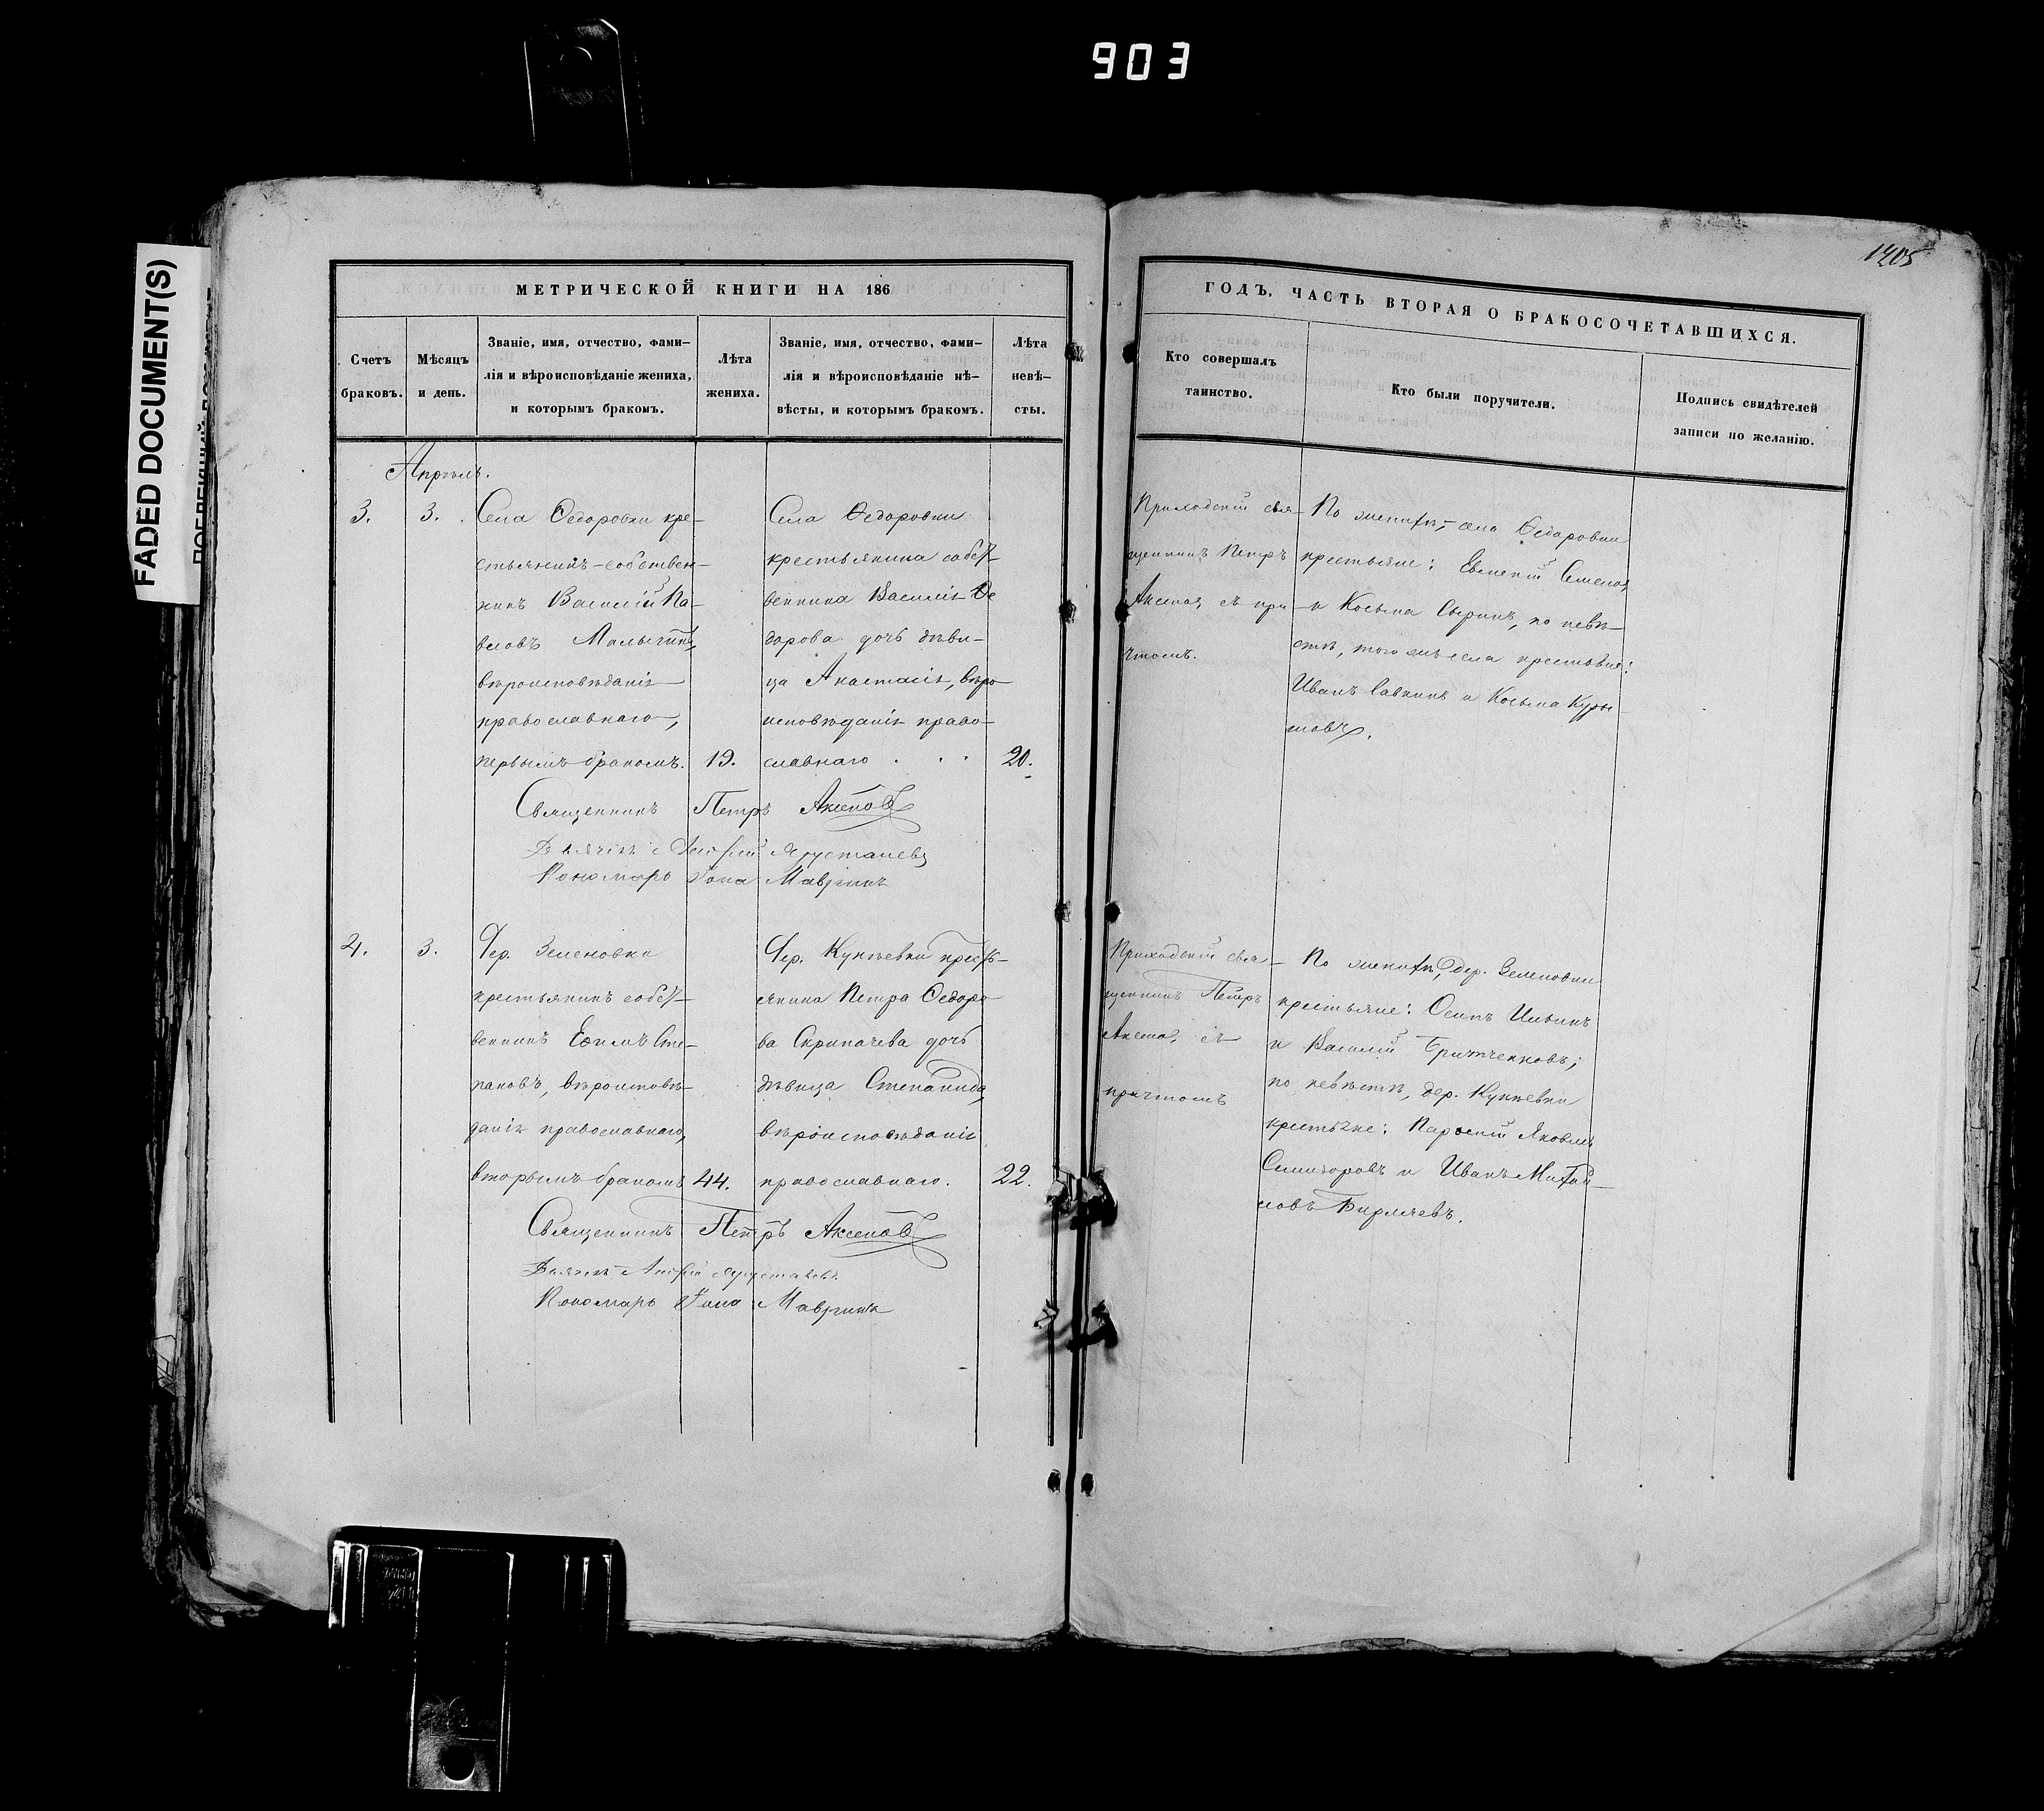 903
FADED DOCUMENT(S)
1405
МЕТРИЧЕСКОЙ КНИГИ НА 186
Счетъ браковъ.
Мѣсяцъ и день.
Званіе, имя, отчество, фами-
лія и вѣроисповѣданіе жениха,
и которымъ бракомъ.
Лѣта жениха.
Званіе, имя, отчество, фами-
лія и вѣроисповѣданіе нѣ-
вѣсты, и которымъ бракомъ.
Лѣта невѣ-
сты.
ГОДЪ. ЧАСТЬ ВТОРАЯ О БРАКОСОЧЕТАВШИХСЯ.
Кто совершалъ
таинство.
Кто были поручители.
Подпись свидѣтелей
записи по желанію.
Апрѣль.
3.
3.
Села Ѳедоровки кре-
стьянинъ-собствен-
никъ Василій Па-
вловъ Малыгинъ,
вѣроисповѣданія
православнаго,
первымъ бракомъ.
19.
Села Ѳедоровки
крестьянина собст-
венника Василія Ѳе
дорова дочь дѣви-
ца Анастасія, вѣро-
исповѣданія право-
славнаго . . .
20.
Приходскій свя-
щенникъ Петръ
Аксеновъ съ при-
чтомъ.
По женихѣ, – села Ѳедоровки
крестьяне: Евгеній Семеновъ
и Косьма Сыринъ, по невѣ-
стѣ, того жъ села крестьяне:
Иванъ Савкинъ и Косьма Куры-
шовъ.
Священникъ Петръ Аксеновъ
Дьячекъ
Пономарь Іона Мавринъ
4.
3.
Дер. Зеленовки
крестьянинъ собст-
венникъ Ефимъ Сте-
пановъ, вѣроисповѣ-
данія православнаго,
вторымъ бракомъ
44.
Дер. Кунѣевки кресть-
янина Петра Ѳедоро
ва Скрипачева дочь
дѣвица Степанида,
вѣроисповѣданія
православнаго.
22.
Приходскій свя-
щенникъ Петръ
Аксеновъ съ
причтомъ
По женихѣ, дер. Зеленовки
крестьяне: Осипъ Ильинъ
и Василій
по невѣстѣ, дер. Кунѣевки
крестьяне: Яковлевъ
и Иванъ Михай-
ловъ
Священникъ Петръ Аксеновъ
Дьячекъ
Пономарь Іона Мавринъ